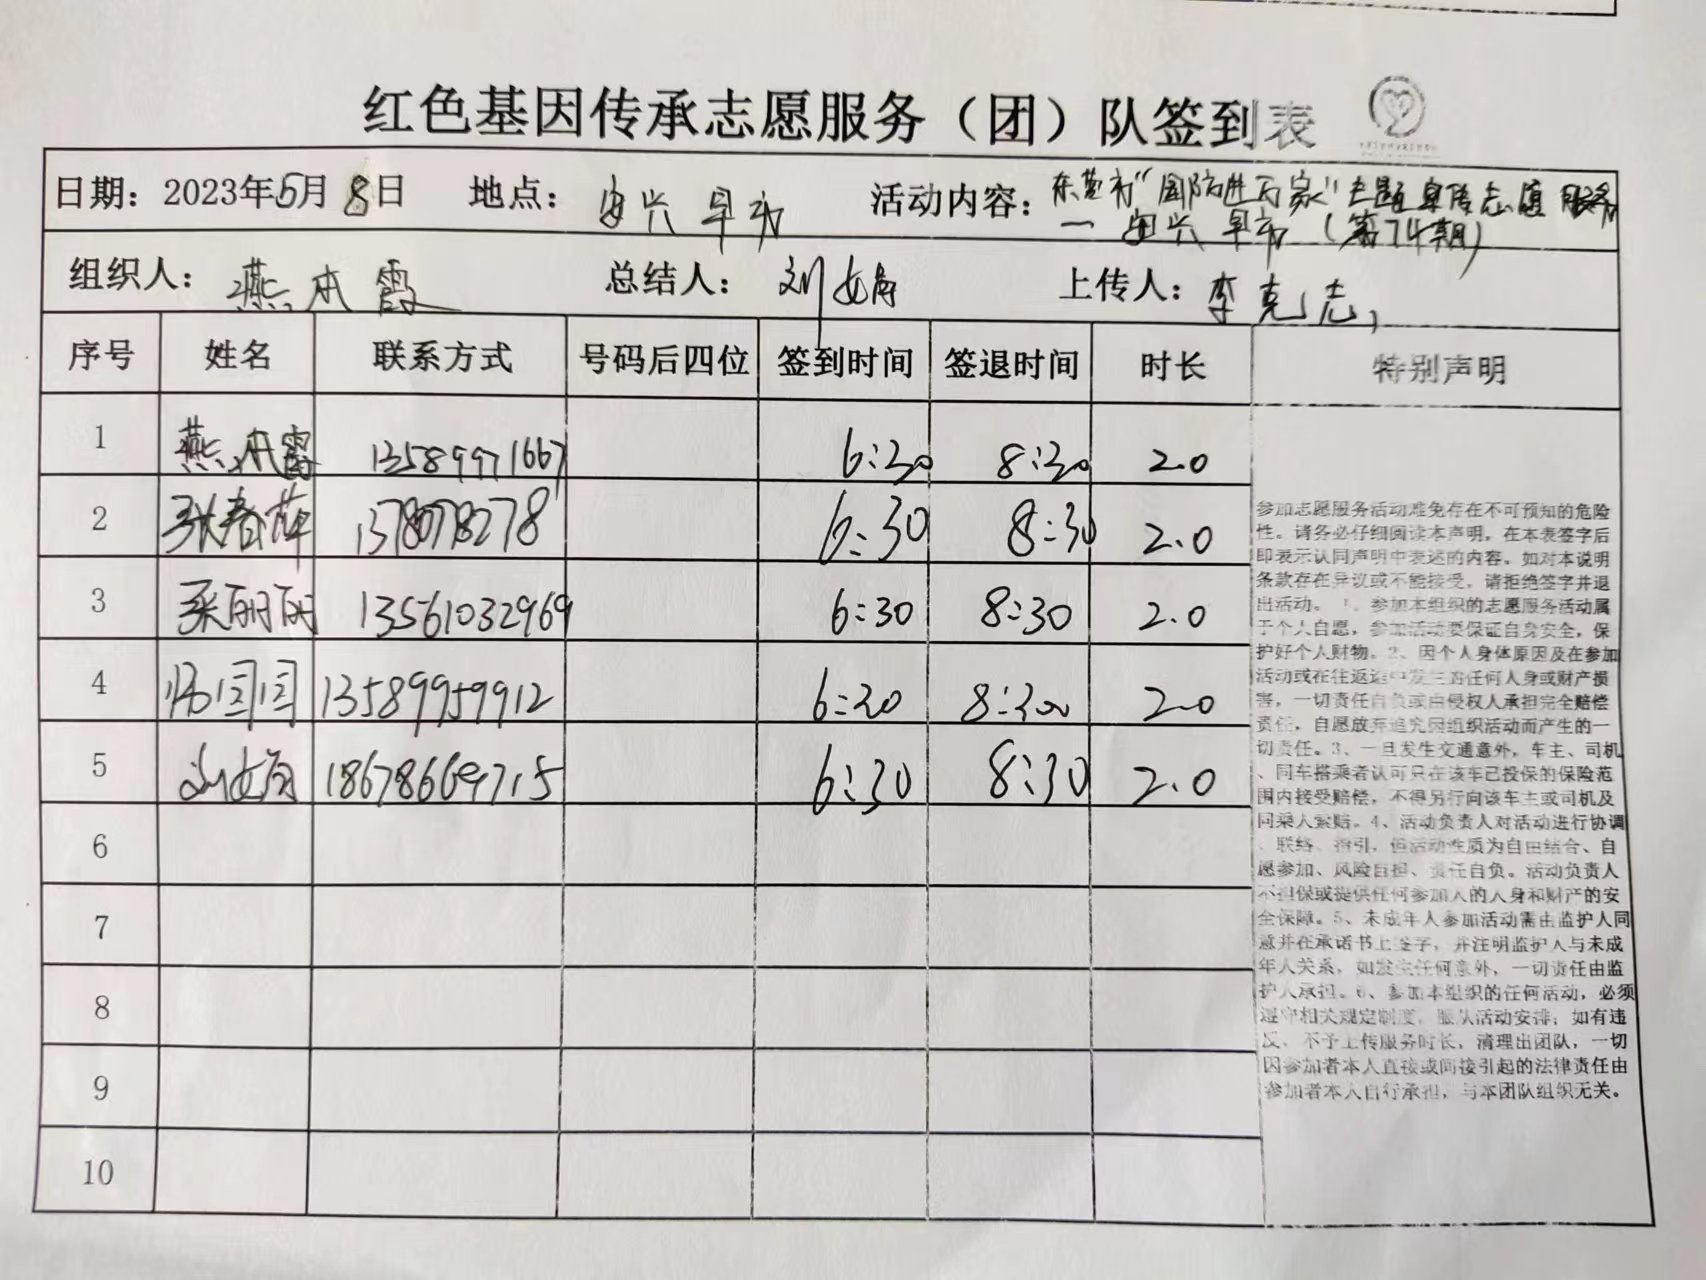 红色基因传承志愿服务（团）队签到表
日期：2023年5月8日 地点：安兴早市 活动内容：东营市“国防进万家”主题宣传志愿服务
一安兴早市（第74期）
组织人：燕本霞 总结人：刘 上传人：李克志
序号 姓名 联系方式 号码后四位 签到时间 签退时间 时长 特别声明
1 燕本霞 13589971667 6:30 8:30 2.0
2 张春萍 1378078278 6:30 8:30 2.0
3 丽丽 13561032969 6:30 8:30 2.0
4 闫闫 13589959912 6:30 8:30 2.0
5 刘 18678669715 6:30 8:30 2.0
6
7
8
9
10
参加志愿服务活动难免存在不可预知的危险
性。请务必仔细阅读本声明，在本表签字后
即表示认同声明中表述的内容。如对本说明
条款存在异议或不能接受，请拒绝签字并退
出活动。 1、参加本组织的志愿服务活动属
于个人自愿，参加活动要保证自身安全，保
护好个人财物。2、因个人身体原因及在参加
活动或在往返途中发生的任何人身或财产损
害，一切责任自负或由侵权人承担完全赔偿
责任，自愿放弃追究因组织活动而产生的一
切责任。3、一旦发生交通意外，车主、司机
、同车搭乘者认可只在该车已投保的保险范
围内接受赔偿，不得另行向该车主或司机及
同乘人索赔。4、活动负责人对活动进行协调
、联络、指引，但活动性质为自由结合、自
愿参加、风险自担、责任自负。活动负责人
不担保或提供任何参加人的人身和财产的安
全保障。5、未成年人参加活动需由监护人同
意并在承诺书上签字，并注明监护人与未成
年人关系，如发生任何意外，一切责任由监
护人承担。6、参加本组织的任何活动，必须
遵守相关规定制度，服从活动安排；如有违
反，不予上传服务时长，清理出团队，一切
因参加者本人直接或间接引起的法律责任由
参加者本人自行承担，与本团队组织无关。